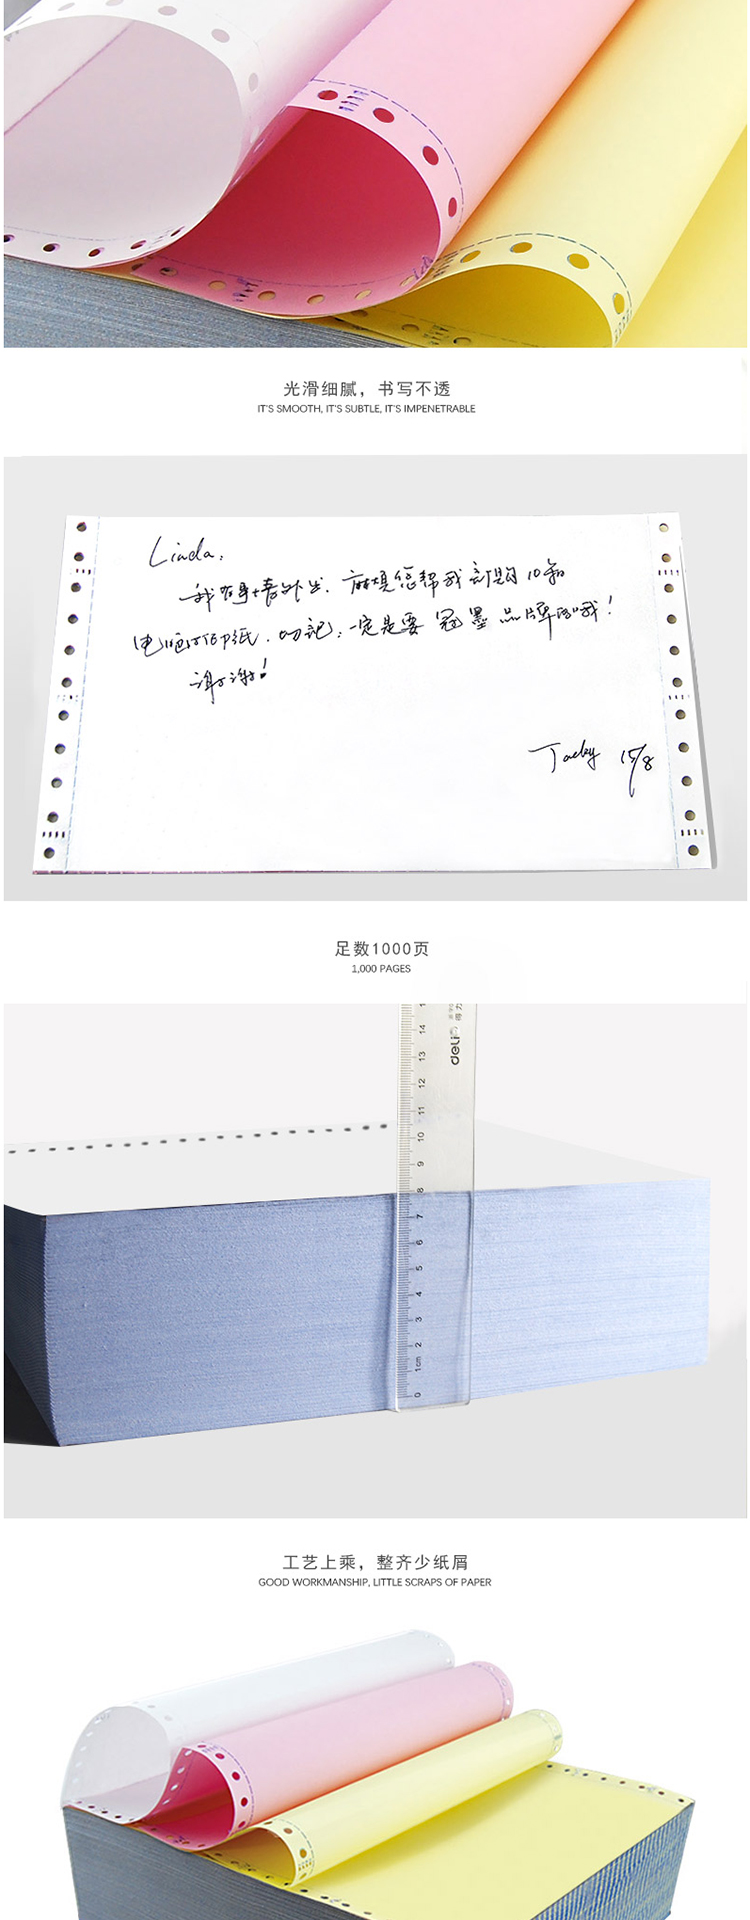 光滑细腻，书写不透
IT'S SMOOTH, IT'S SUBTLE, IT'S IMPENETRABLE
Linda,
我有事情外出，麻烦您帮我订购10箱
电脑打印纸，切记，一定是要冠墨品牌的哦！
谢谢！
Jacky 15/8
足数1000页
1,000 PAGES
14
13
deli 得力
12
11
10
9
8
7
6
5
4
3
2
1cm
0
工艺上乘，整齐少纸屑
GOOD WORKMANSHIP, LITTLE SCRAPS OF PAPER